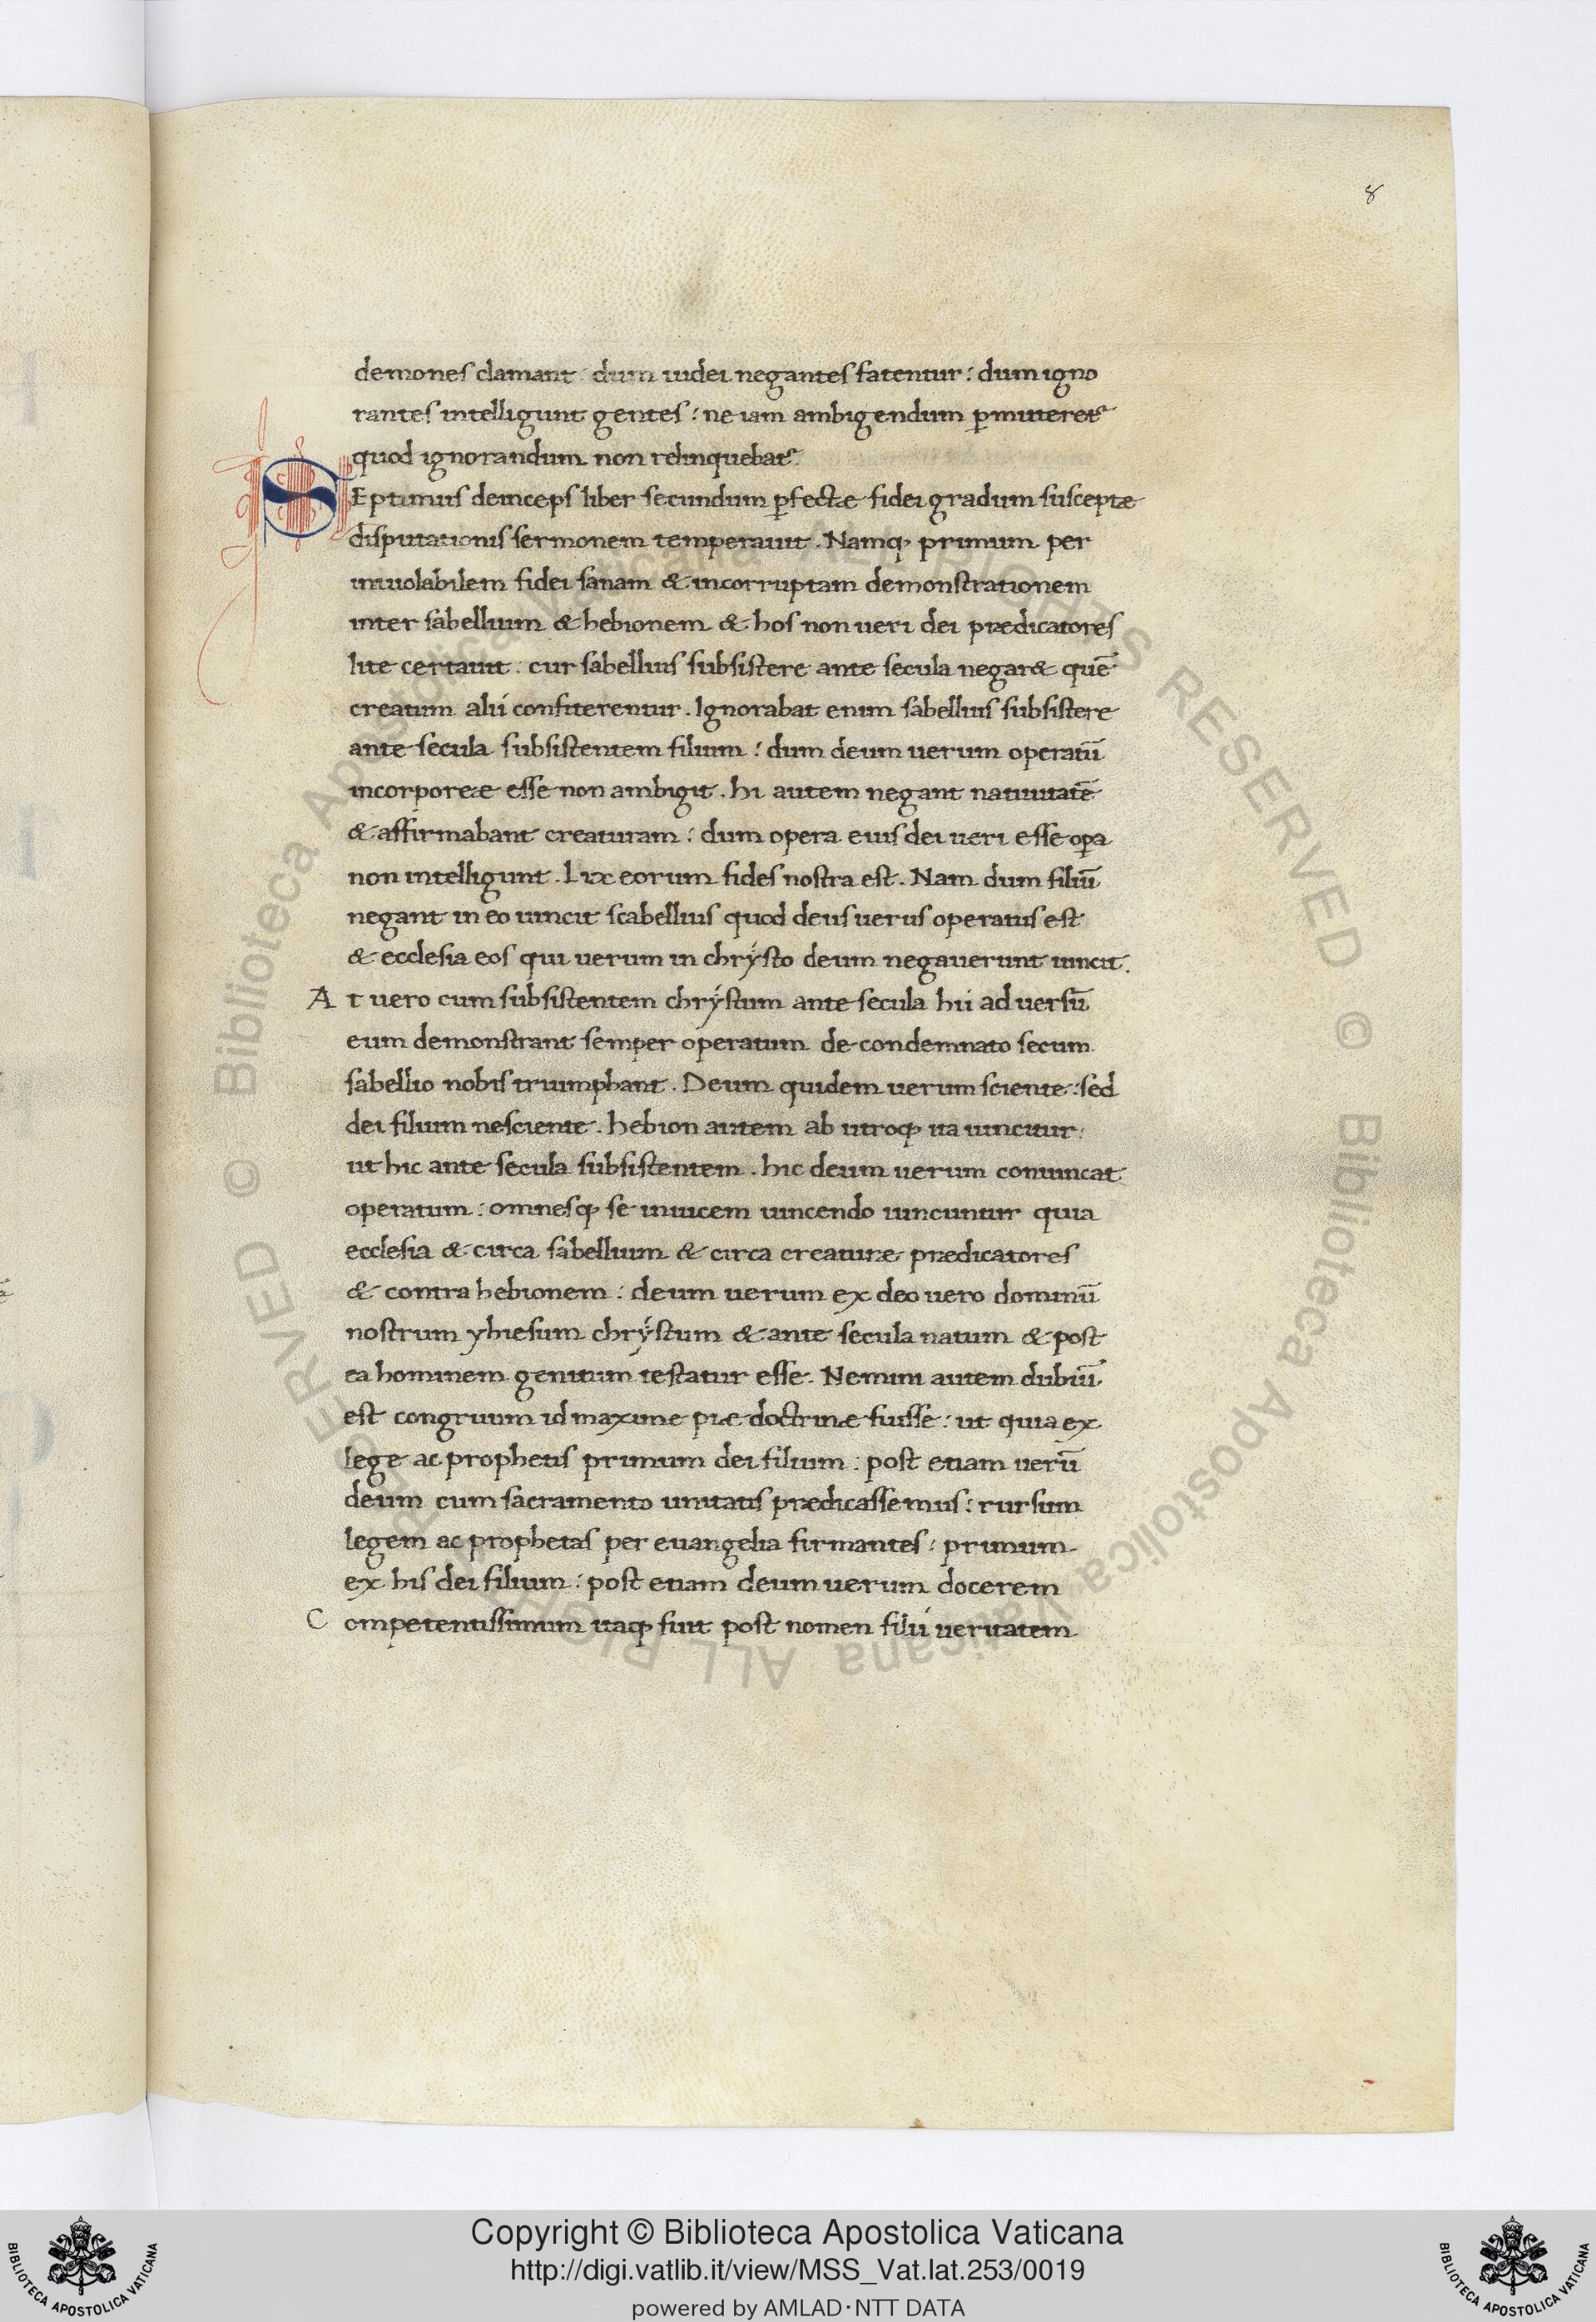 8
demones clamant: dum iudei negantes fatentur: dum igno
rantes intelligunt gentes: ne iam ambigendum ꝑmitteret᷑
quod ignorandum non relinquebat᷑.
SEptimus deinceps liber secundum ꝑfectæ fidei gradum susceptæ
disputationis sermonem temperauit. Namqꝫ primum per
inuiolabilem fidei sanam & incorruptam demonstrationem
inter sabellium & hebionem & hos non ueri dei prædicatores
lite certauit: cur sabellius subsistere ante secula negar& quē
creatum alii confiterentur. Ignorabat enim sabellius subsistere
ante secula subsistentem filium: dum deum uerum operatū
incorporeæ esse non ambigit. hi autem negant natiuitatē
& affirmabant creaturam: dum opera eius dei ueri esse oꝑa
non intelligunt. Lix eorum fides nostra est. Nam dum filiū
negant in eo uincit scabellius quod deus uerus operatus est
& ecclesia eos qui uerum in chrẏsto deum negauerunt uincit.
At uero cum subsistentem chrẏstum ante secula hii ad uersū
eum demonstrant semper operatum de condemnato secum
sabellio nobis triumphant. Deum quidem uerum sciente: sed
dei filium nesciente. hebion autem ab utroqꝫ ita uincitur:
ut hic ante secula subsistentem. hic deum uerum conuincat
operatum: omnesqꝫ se inuicem uincendo uincuntur quia
ecclesia & circa sabellium & circa creaturæ prædicatores
& contra hebionem: deum uerum ex deo uero dominū
nostrum yhiesum chrẏstum & ante secula natum & post
ea hominem genitum testatur esse. Nemini autem dubiū
est congruum id maxime piæ doctrinæ fuisse: ut quia ex
lege ac prophetis primum dei filium: post etiam uerū
deum cum sacramento unitatis prædicassemus: rursum
legem ac prophetas per euangelia firmantes: primum
ex his dei filium: post etiam deum uerum docerem
Competentissimum itaqꝫ fuit post nomen filii ueritatem
Copyright © Biblioteca Apostolica Vaticana
http://digi.vatlib.it/view/MSS_Vat.lat.253/0019
powered by AMLAD·NTT DATA
BIBLIOTECA APOSTOLICA VATICANA
BIBLIOTECA APOSTOLICA VATICANA
© Biblioteca Apostolica Vaticana ALL RIGHTS RESERVED © Biblioteca Apostolica Vaticana ALL RIGHTS RESERVED